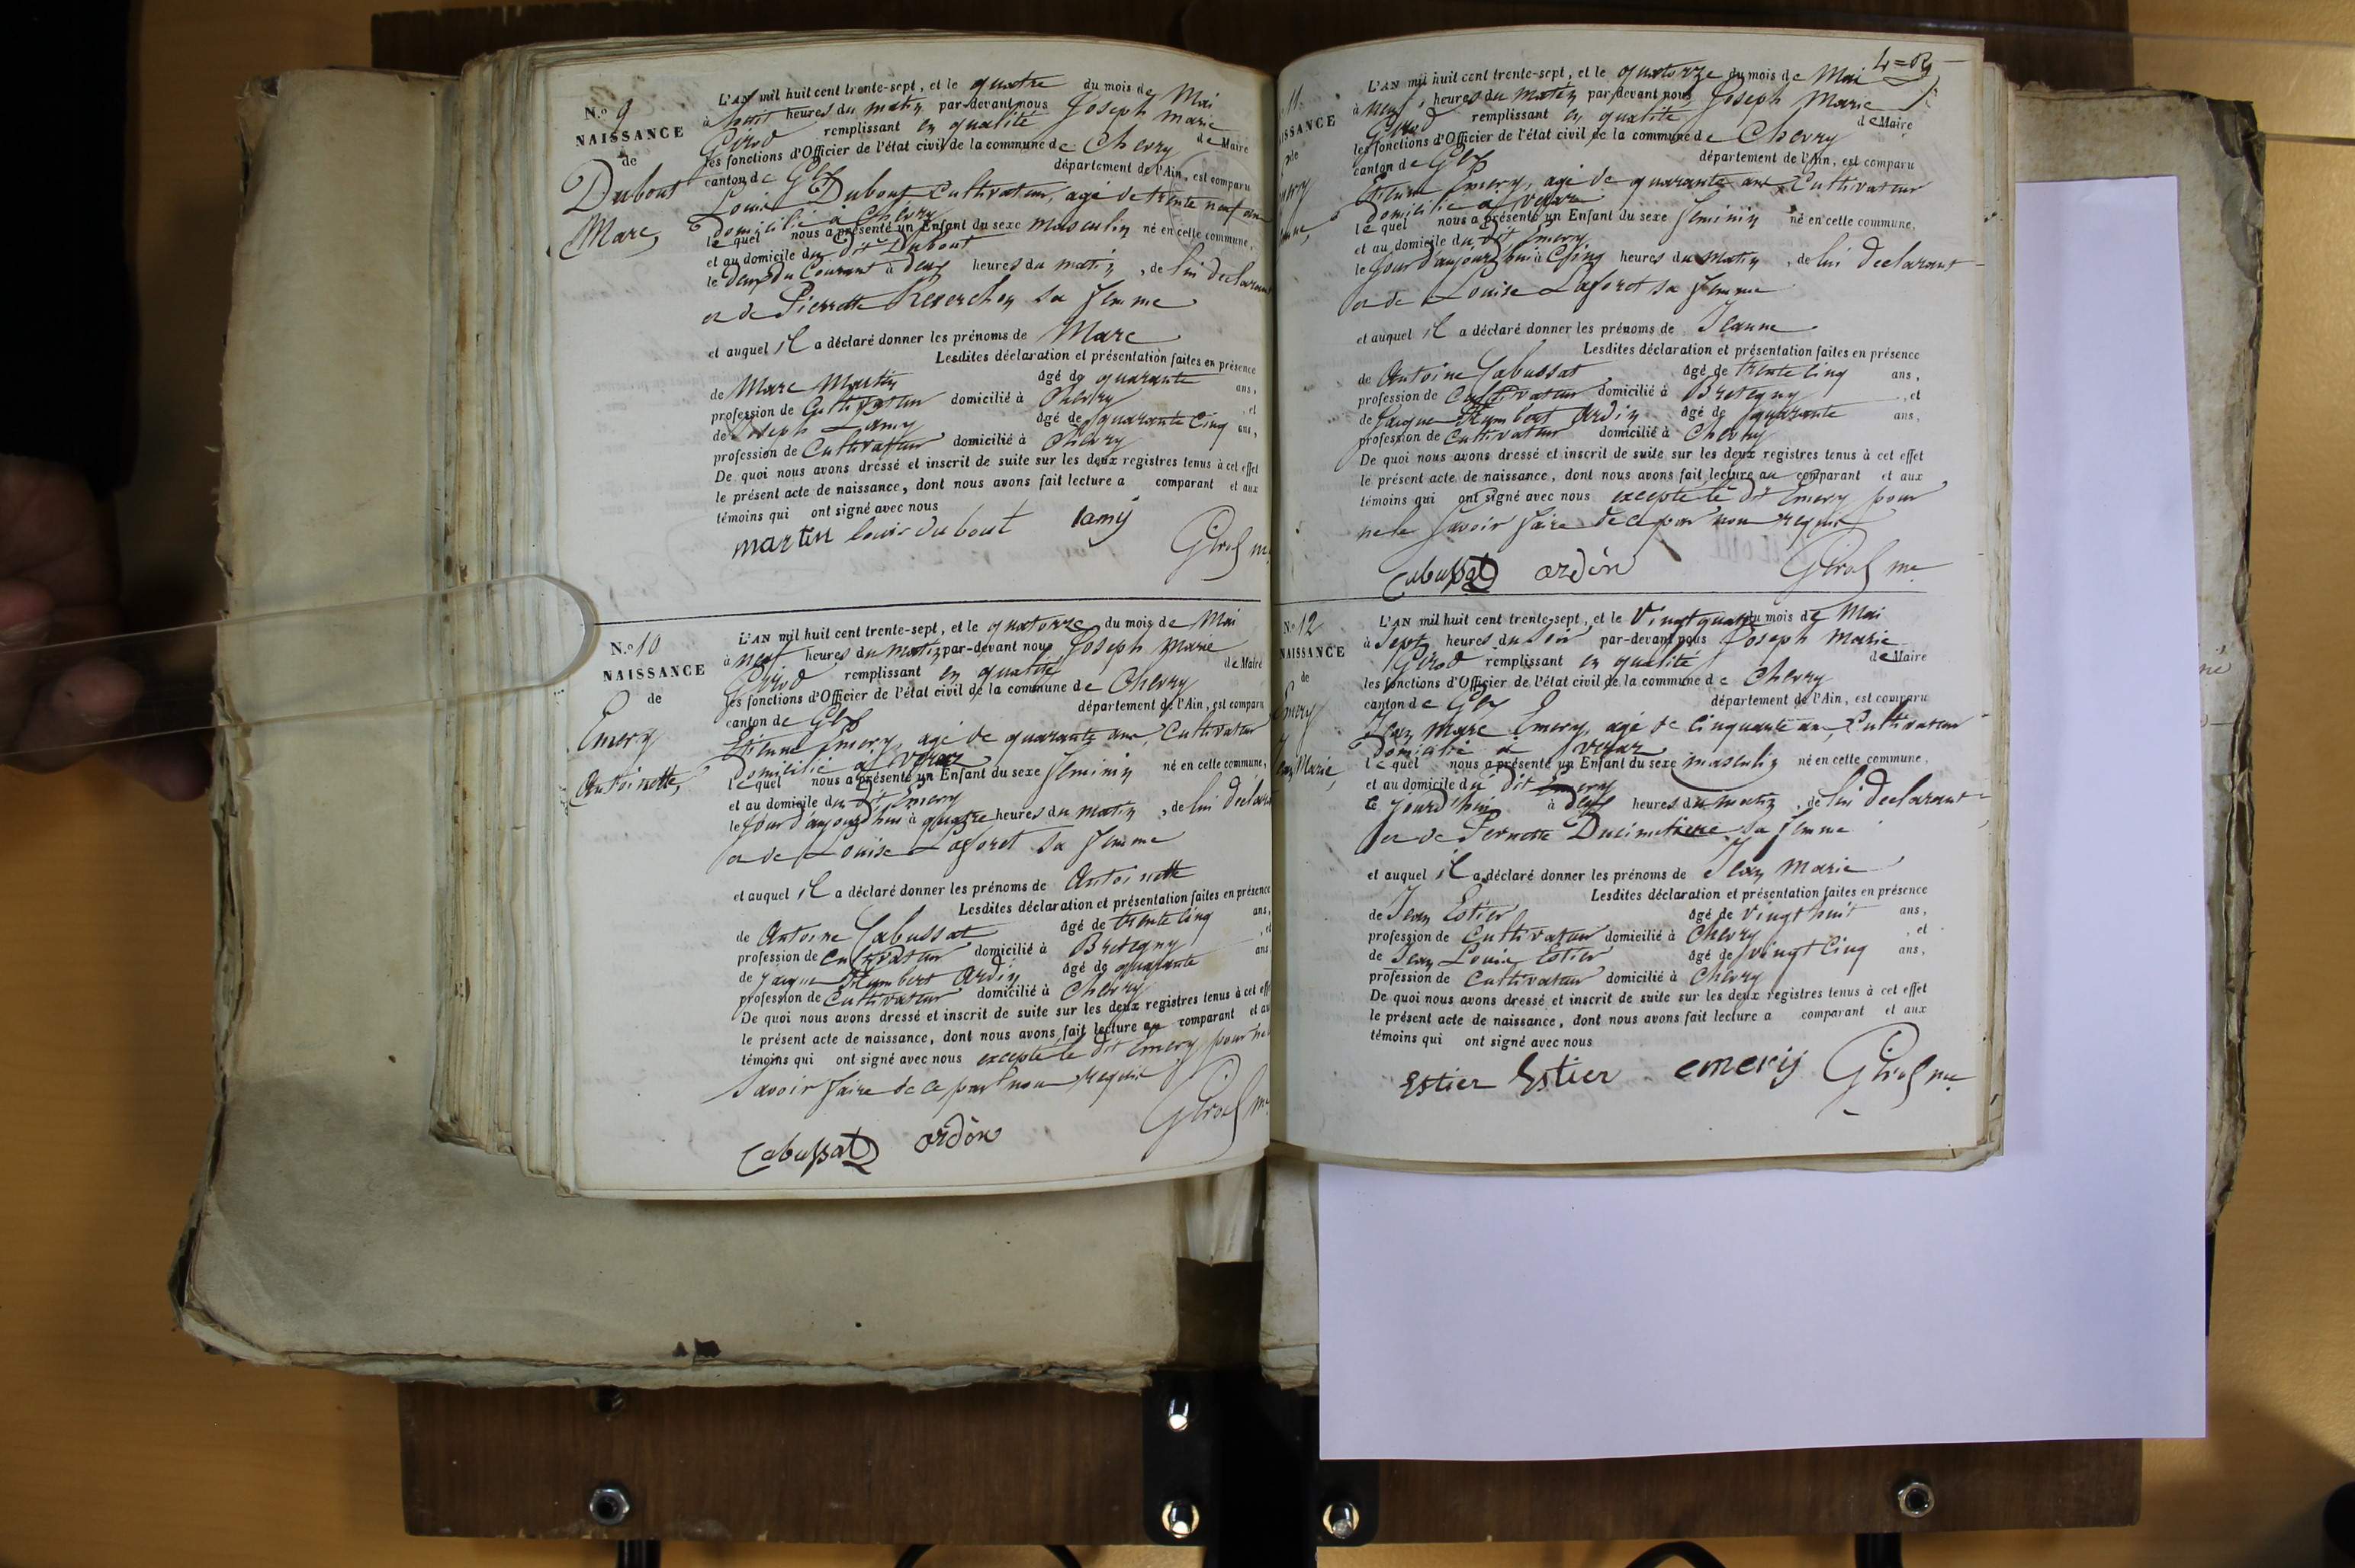 N.o 9
NAISSANCE
de
Dubout
Marc
L'AN mil huit cent trente-sept, et le quatre du mois de Mai
à huit heures du matin par-devant nous Joseph Marie
Girod remplissant en qualité de Maire
les fonctions d'Officier de l'état civil de la commune de Chevry
canton de Gex département de l'Ain, est comparu
Louis Dubout Cultivateur, agé de trente neuf ans
Domicilié à Chevry
lequel nous a présenté un Enfant du sexe masculin né en cette commune,
et au domicile du dit Dubout
le deux du Courant à deux heures du matin, de lui déclarant
et de Pierrette sa femme
et auquel il a déclaré donner les prénoms de Marc
Lesdites déclaration et présentation faites en présence
de Marc Martin âgé de quarante ans,
profession de Cultivateur domicilié à Chevry, et
de Joseph Lamy âgé de quarante Cinq ans,
profession de Cultivateur domicilié à Chevry
De quoi nous avons dressé et inscrit de suite sur les deux registres tenus à cet effet
le présent acte de naissance, dont nous avons fait lecture a comparant et aux
témoins qui ont signé avec nous
martin louis dubout lamy
Girod me
N.o 10
NAISSANCE
de
Emery
Antoinette,
L'AN mil huit cent trente-sept, et le quatorze du mois de Mai
à neuf heures du matin par-devant nous Joseph Marie
Girod remplissant en qualité de Maire
les fonctions d'Officier de l'état civil de la commune de Chevry
canton de Gex département de l'Ain, est comparu
Etienne Emery, agé de quarante ans, Cultivateur
Domicilié à Veraz
lequel nous a présenté un Enfant du sexe feminin né en cette commune,
et au domicile du dit Emery
le Jour d'aujourd'hui à quatre heures du matin, de lui déclarant
et de Louise Laforet sa femme
et auquel il a déclaré donner les prénoms de Antoinette
Lesdites déclaration et présentation faites en présence
de Antoine Cabussat âgé de trente Cinq ans,
profession de Cultivateur domicilié à Bretegny, et
de Jaque Humbert Ardin âgé de quarante ans
profession de Cultivateur domicilié à Chevry
De quoi nous avons dressé et inscrit de suite sur les deux registres tenus à cet eff
le présent acte de naissance, dont nous avons fait lecture au comparant et au
témoins qui ont signé avec nous excepté le dit Emery pour ne
savoir faire de ce par nous requis
Girod me
Cabussat ardin
4=
11
ISSANCE
de
L'AN mil huit cent trente-sept, et le quatorze du mois de Mai
à neuf heures du matin par-devant nous Joseph Marie
Girod remplissant en qualité de Maire
les fonctions d'Officier de l'état civil de la commune de Chevry
canton de Gex département de l'Ain, est comparu
Etienne Emery, agé de quarante ans Cultivateur
Domicilié à Veraz
lequel nous a présenté un Enfant du sexe feminin né en cette commune,
et au domicile du dit Emery
le Jour d'aujourd'hui à Cinq heures du matin, de lui déclarant
et de Louise Laforet sa femme
et auquel il a déclaré donner les prénoms de Jeanne
Lesdites déclaration et présentation faites en présence
de Antoine Cabussat âgé de trente Cinq ans,
profession de Cultivateur domicilié à Bretegny, et
de Jaque Humbert Ardin âgé de quarante ans,
profession de Cultivateur domicilié à Chevry
De quoi nous avons dressé et inscrit de suite sur les deux registres tenus à cet effet
le présent acte de naissance, dont nous avons fait lecture au comparant et aux
témoins qui ont signé avec nous excepté le dit Emery pour
ne le savoir faire de ce par nous requis
Cabussat ardin Girod me
No 12
NAISSANCE
de
Emery
Jean Marie,
L'AN mil huit cent trente-sept, et le Vingt quatre du mois de Mai
à Sept heures du Soir par-devant nous Joseph Marie
Girod remplissant en qualité de Maire
les fonctions d'Officier de l'état civil de la commune de Chevry
canton de Gex département de l'Ain, est comparu
Jean Marc Emery, agé de Cinquante ans, Cultivateur
Domicilié à Veraz
lequel nous a présenté un Enfant du sexe masculin né en cette commune,
et au domicile du dit Emery
ce Jourd'hui à deux heures du matin, de lui déclarant
et de Pernette Ducimetiere sa femme
et auquel il a déclaré donner les prénoms de Jean Marie
Lesdites déclaration et présentation faites en présence
de Jean Estier âgé de Vingt huit ans,
profession de Cultivateur domicilié à Chevry, et
de Jean Louis Estier âgé de Vingt Cinq ans,
profession de Cultivateur domicilié à Chevry
De quoi nous avons dressé et inscrit de suite sur les deux registres tenus à cet effet
le présent acte de naissance, dont nous avons fait lecture a comparant et aux
témoins qui ont signé avec nous
Estier Estier emery Girod me